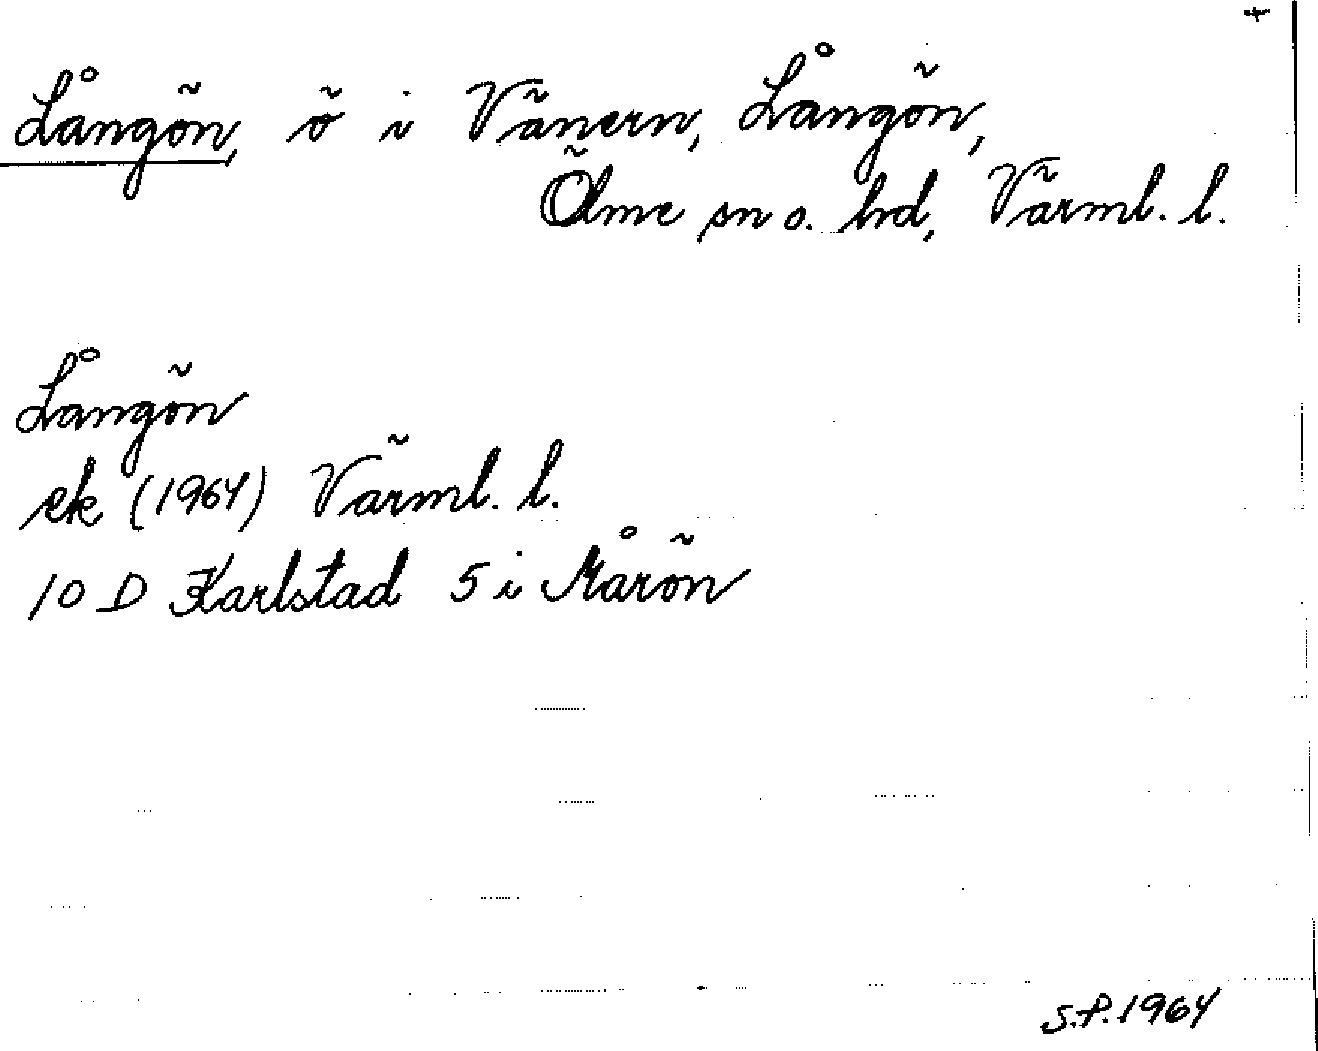 Långön, ö i Vänern, Långön,
Ölme sn o. hd, Värml. l.
Långön
ek (1964) Värml. l.
10 D Karlstad 5 i Mårön
S.P. 1964